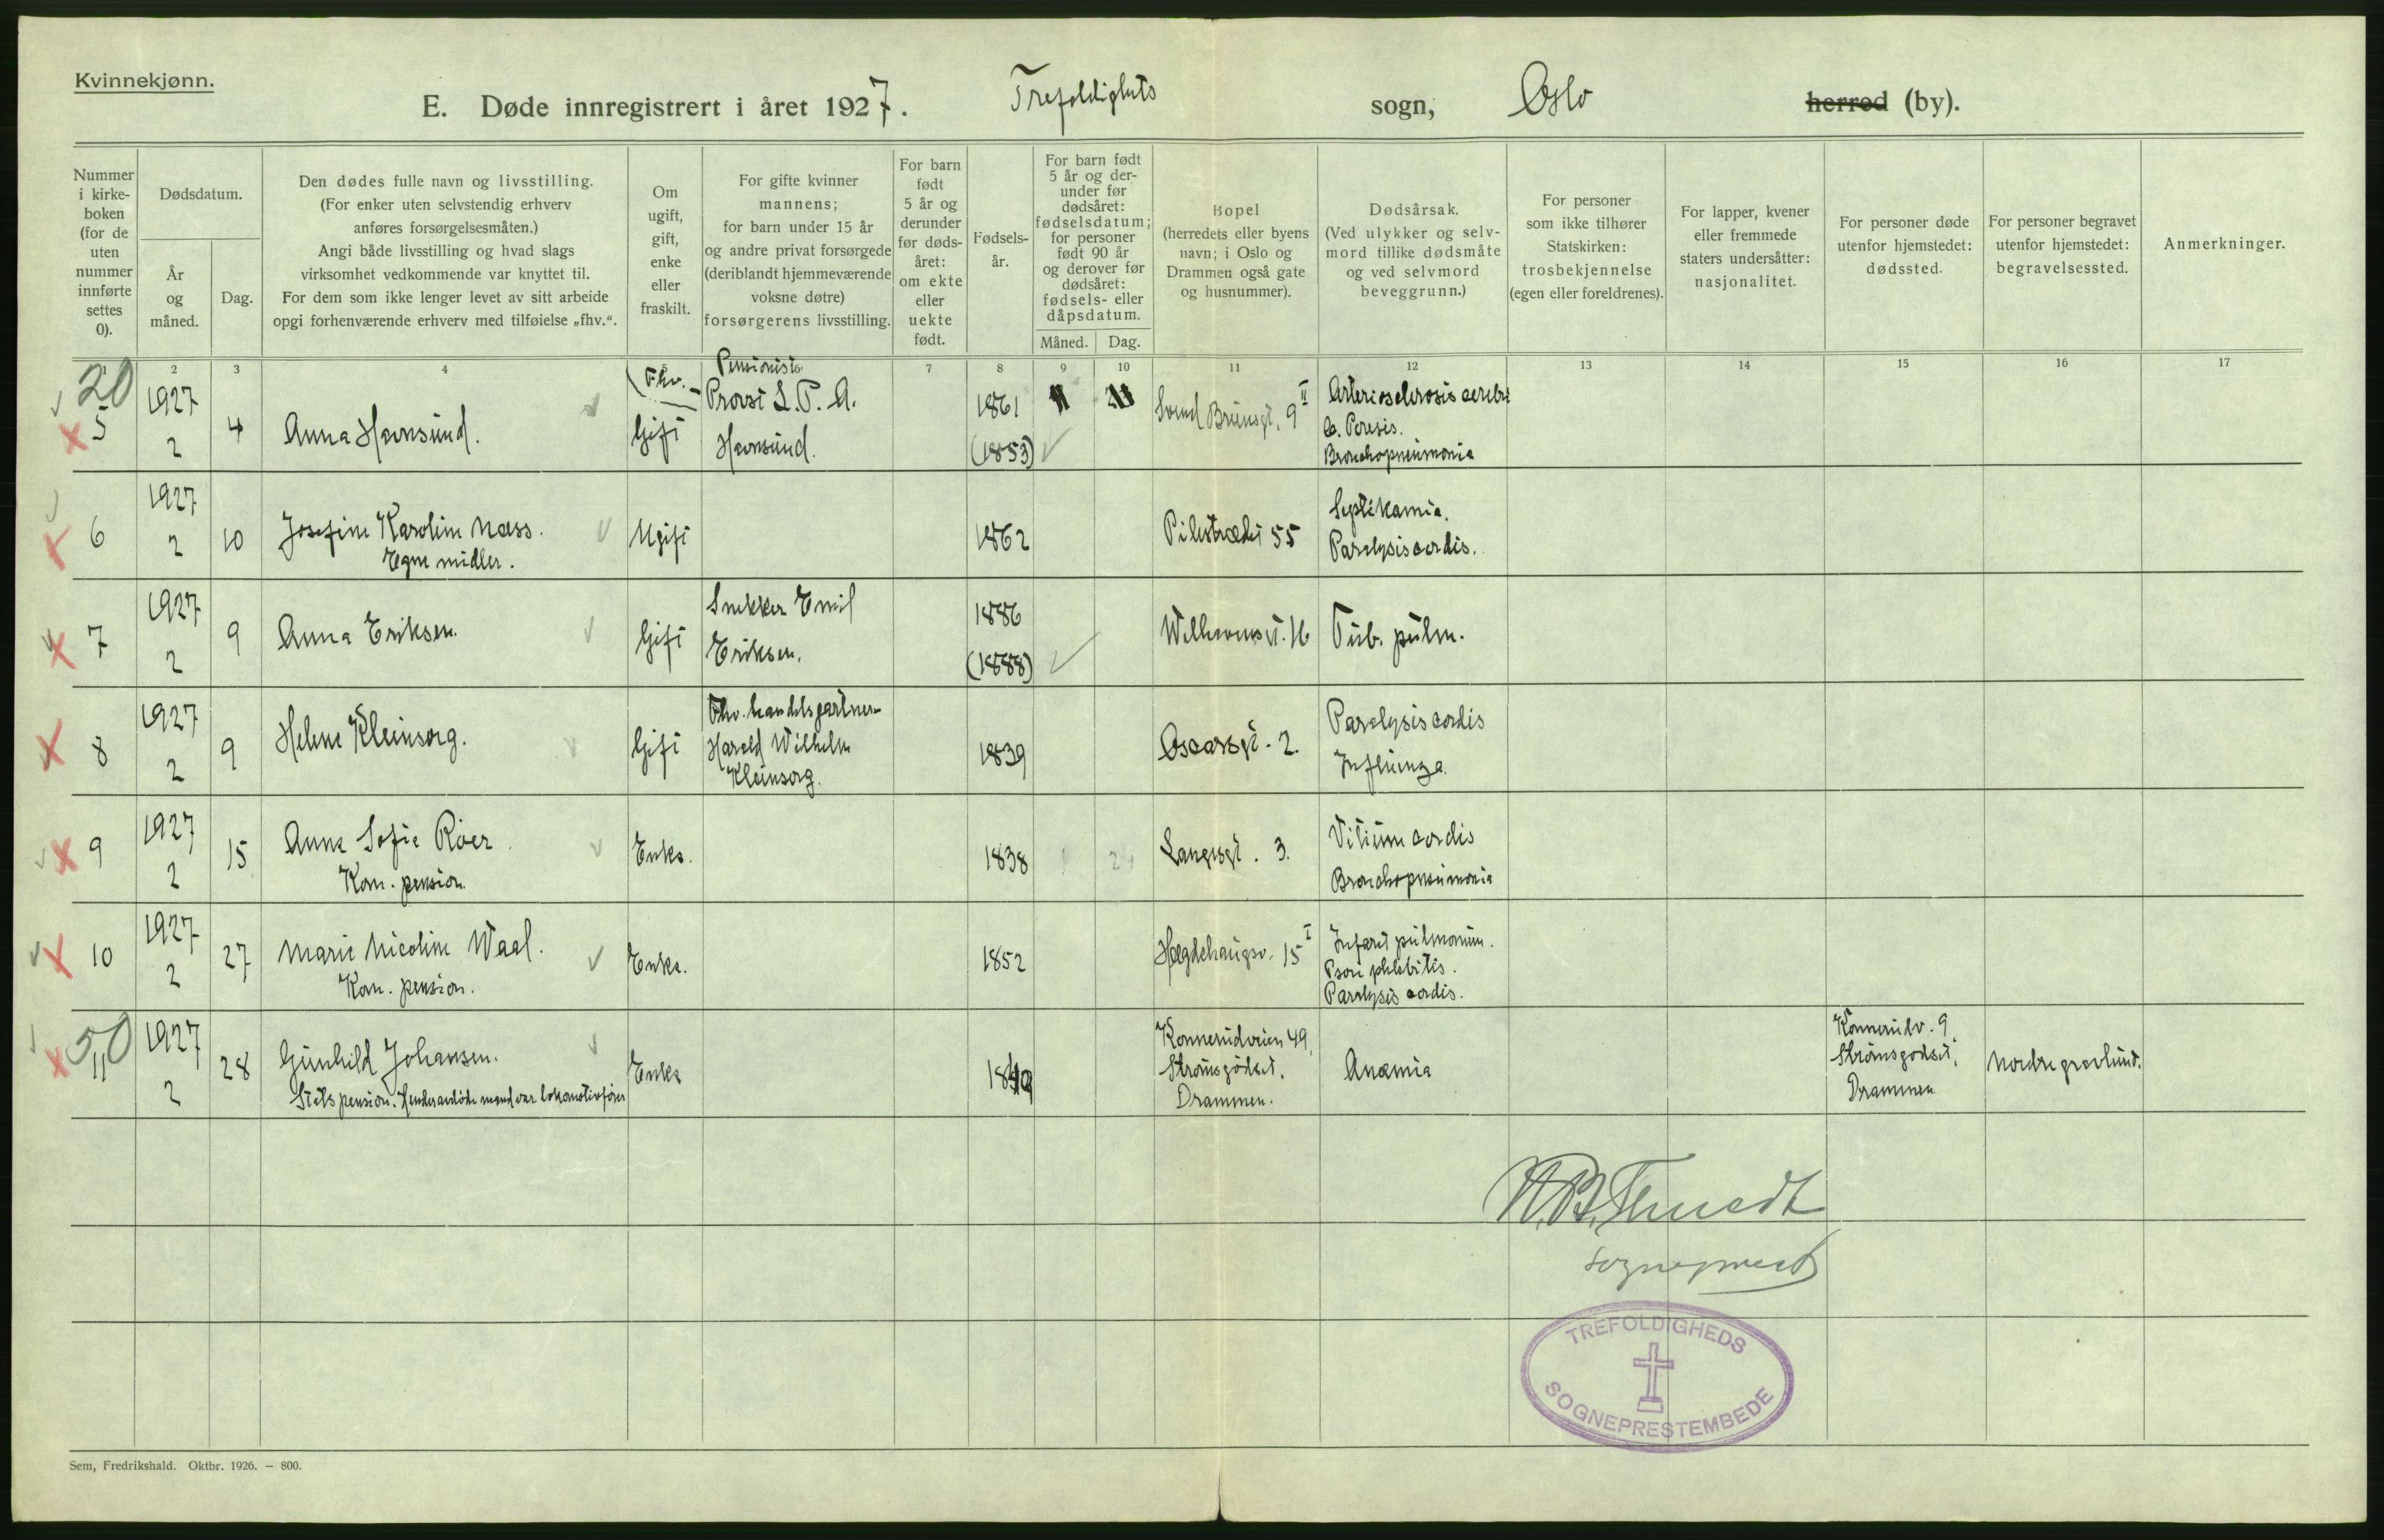 Kvinnekjønn.
E. Døde innregistrert i året 1927. Trefoldighets sogn, Oslo herred (by).
Nummer
i kirke-
boken
(for de
uten
nummer
innførte
settes
0).
Dødsdatum.
År
og
måned.
Dag.
Den dødes fulle navn og livsstilling.
(For enker uten selvstendig erhverv
anføres forsørgelsesmåten.)
Angi både livsstilling og hvad slags
virksomhet vedkommende var knyttet til.
For dem som ikke lenger levet av sitt arbeide
opgi forhenværende erhverv med tilføielse „fhv.“.
Om
ugift,
gift,
enke
eller
fraskilt.
For gifte kvinner
mannens;
for barn under 15 år
og andre privat forsørgede
(deriblandt hjemmeværende
voksne døtre)
forsørgerens livsstilling.
For barn
født
5 år og
derunder
før døds-
året:
om ekte
eller
uekte
født.
Fødsels-
år.
For barn født
5 år og der-
under før
dødsåret:
fødselsdatum;
for personer
født 90 år
og derover før
dødsåret:
fødsels- eller
dåpsdatum.
Måned. Dag.
Bopel
(herredets eller byens
navn; i Oslo og
Drammen også gate
og husnummer).
Dødsårsak.
(Ved ulykker og selv-
mord tillike dødsmåte
og ved selvmord
beveggrunn.)
For personer
som ikke tilhører
Statskirken:
trosbekjennelse
(egen eller foreldrenes).
For lapper, kvener
eller fremmede
staters undersåtter:
nasjonalitet.
For personer døde
utenfor hjemstedet:
dødssted.
For personer begravet
utenfor hjemstedet:
begravelsessted.
Anmerkninger.
2 3 4 7 8 9 10 11 12 13 14 15 16 17
20
5
1927
2
4
Anna Havnsund.
Fhv.
Gift
Pensionist
Provst L. P. A.
Havnsund.
1861
(1853)
Svend Bruunsgt. 9 II
Arteriosclerosis cerebri
Bronchopneumonia
6
1927
2
10
Josefine Karoline Næss.
Egne midler.
Ugift
1862
Pilestrædet 55
Septikæmia.
Paralysis cordis.
7
1927
2
9
Anna Eriksen.
Gift
Snekker Emil
Eriksen.
1886
(1888)
Welhavensgt. 16
Tub. pulm.
8
1927
2
9
Helene Kleinsorg.
Gift
Fhv. handelsgartner
Harald Wilhelm
Kleinsorg.
1839
Oscarsgt. 2.
Paralysis cordis
Influenza
9
1927
2
15
Anna Sofie Röer
Kom. pension
Enke.
1838
Langesgt. 3.
Vitium cordis
Bronchopneumonia
10
1927
2
27
Marie Nicoline Waal.
Kom. pension.
Enke.
1852
Hegdehaugsv. 15 I
Infarct pulmonum.
Paralysis cordis.
50
11
1927
2
28
Gunhild Johansen.
Stats pension. Hendes avdöde mand var lokomotivförer
Enke
Konnerudveien 49,
Strømsgodset.
Drammen.
Anæmia
Konnerudv. 9,
Strømsgodset,
Drammen
Nordre gravlund.
sogneprest
TREFOLDIGHEDS
SOGNEPRESTEMBEDE
Sem, Fredrikshald. Oktbr. 1926. — 800.